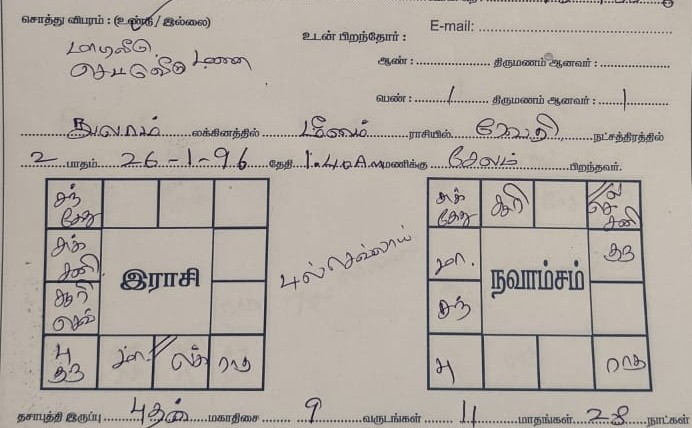 சொத்து விபரம் : (உண்டு / இல்லை)
உடன் பிறந்தோர் :
E-mail:
மாடிவீடு
ஆண் : திருமணம் ஆனவர் :
மனை
பெண் : 1 திருமணம் ஆனவர் : 1
துலாம் லக்கினத்தில் மீனம் ராசியில் ரேவதி நட்சத்திரத்தில்
2 பாதம் 26-1-96 தேதி 1.40 A.m மணிக்கு சேலம் பிறந்தவர்.
சந் கேது
சுக் சனி
சூரி செவ்
பு குரு
மா.
லக்
ராகு
இராசி
சுக் கேது
சூரி
ல செ சனி
மா.
குரு
சந்
பு
ராகு
நவாம்சம்
தசாபுத்தி இருப்பு புதன் மகாதிசை 9 வருடங்கள் 11 மாதங்கள் 28 நாட்கள்